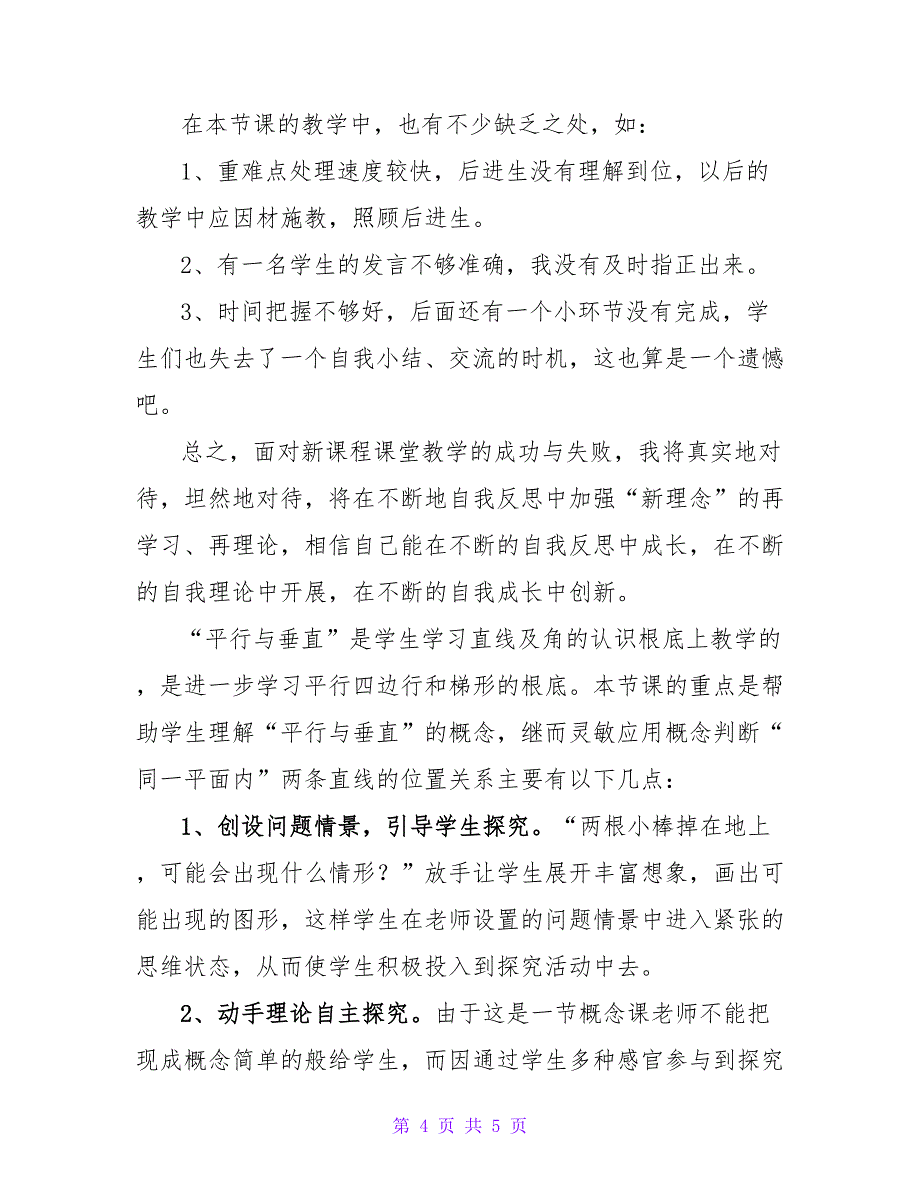 在本节课的教学中，也有不少缺乏之处，如：
1、重难点处理速度较快，后进生没有理解到位，以后的
教学中应因材施教，照顾后进生。
2、有一名学生的发言不够准确，我没有及时指正出来。
3、时间把握不够好，后面还有一个小环节没有完成，学
生们也失去了一个自我小结、交流的时机，这也算是一个遗憾
吧。
总之，面对新课程课堂教学的成功与失败，我将真实地对
待，坦然地对待，将在不断地自我反思中加强“新理念”的再
学习、再理论，相信自己能在不断的自我反思中成长，在不断
的自我理论中开展，在不断的自我成长中创新。
“平行与垂直”是学生学习直线及角的认识根底上教学的
，是进一步学习平行四边行和梯形的根底。本节课的重点是帮
助学生理解“平行与垂直”的概念，继而灵敏应用概念判断“
同一平面内”两条直线的位置关系主要有以下几点：
1、创设问题情景，引导学生探究。“两根小棒掉在地上
，可能会出现什么情形？”放手让学生展开丰富想象，画出可
能出现的图形，这样学生在老师设置的问题情景中进入紧张的
思维状态，从而使学生积极投入到探究活动中去。
2、动手理论自主探究。由于这是一节概念课老师不能把
现成概念简单的般给学生，而因通过学生多种感官参与到探究
第 4 页 共 5 页